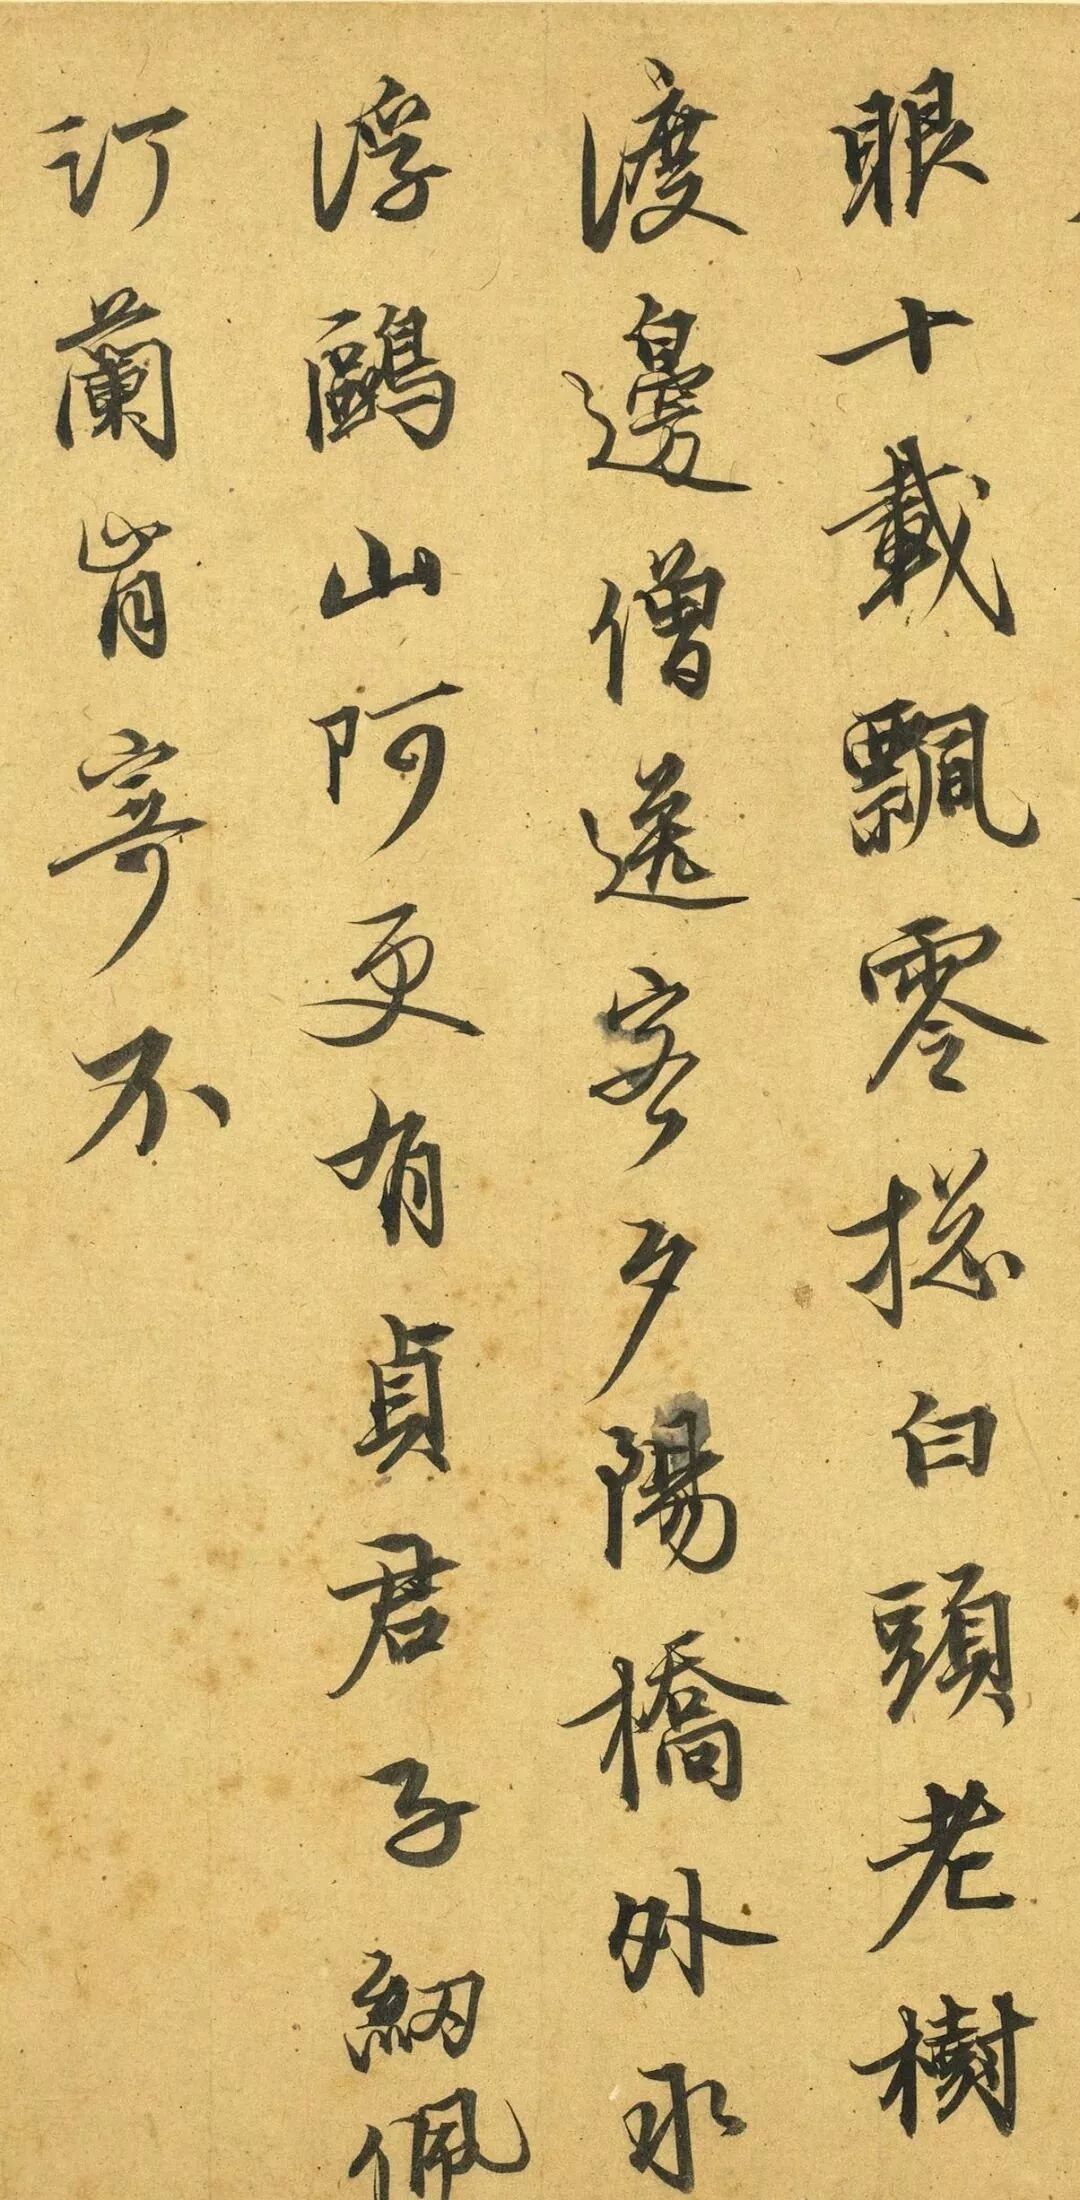 眼十載飄零揔白頭老樹
渡邊僧送客夕陽橋外水
浮鷗山阿更有貞君子紉佩
汀蘭肯寄不